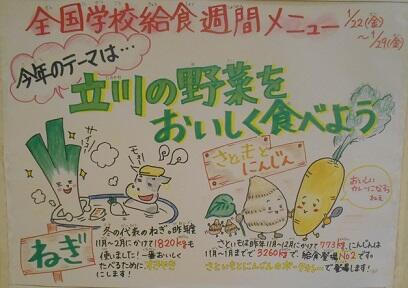 全国学校給食週間メニュー 1/22(金)
～1/29(金)
今年のテーマは…
立川の野菜を
おいしく食べよう
さといもと
にんじん
ねぎ
冬の代表のねぎ。昨年度
11月～2月にかけて1820kgも
使いました!一番おいしく
たべるために
にします!
おいしい
カレーになろう
ねぇ
さといもは昨年11月～12月にかけて773kg、にんじんは
11月～1月までで3260kgで給食登場No2です。
さといもとにんじんの
で登場します!